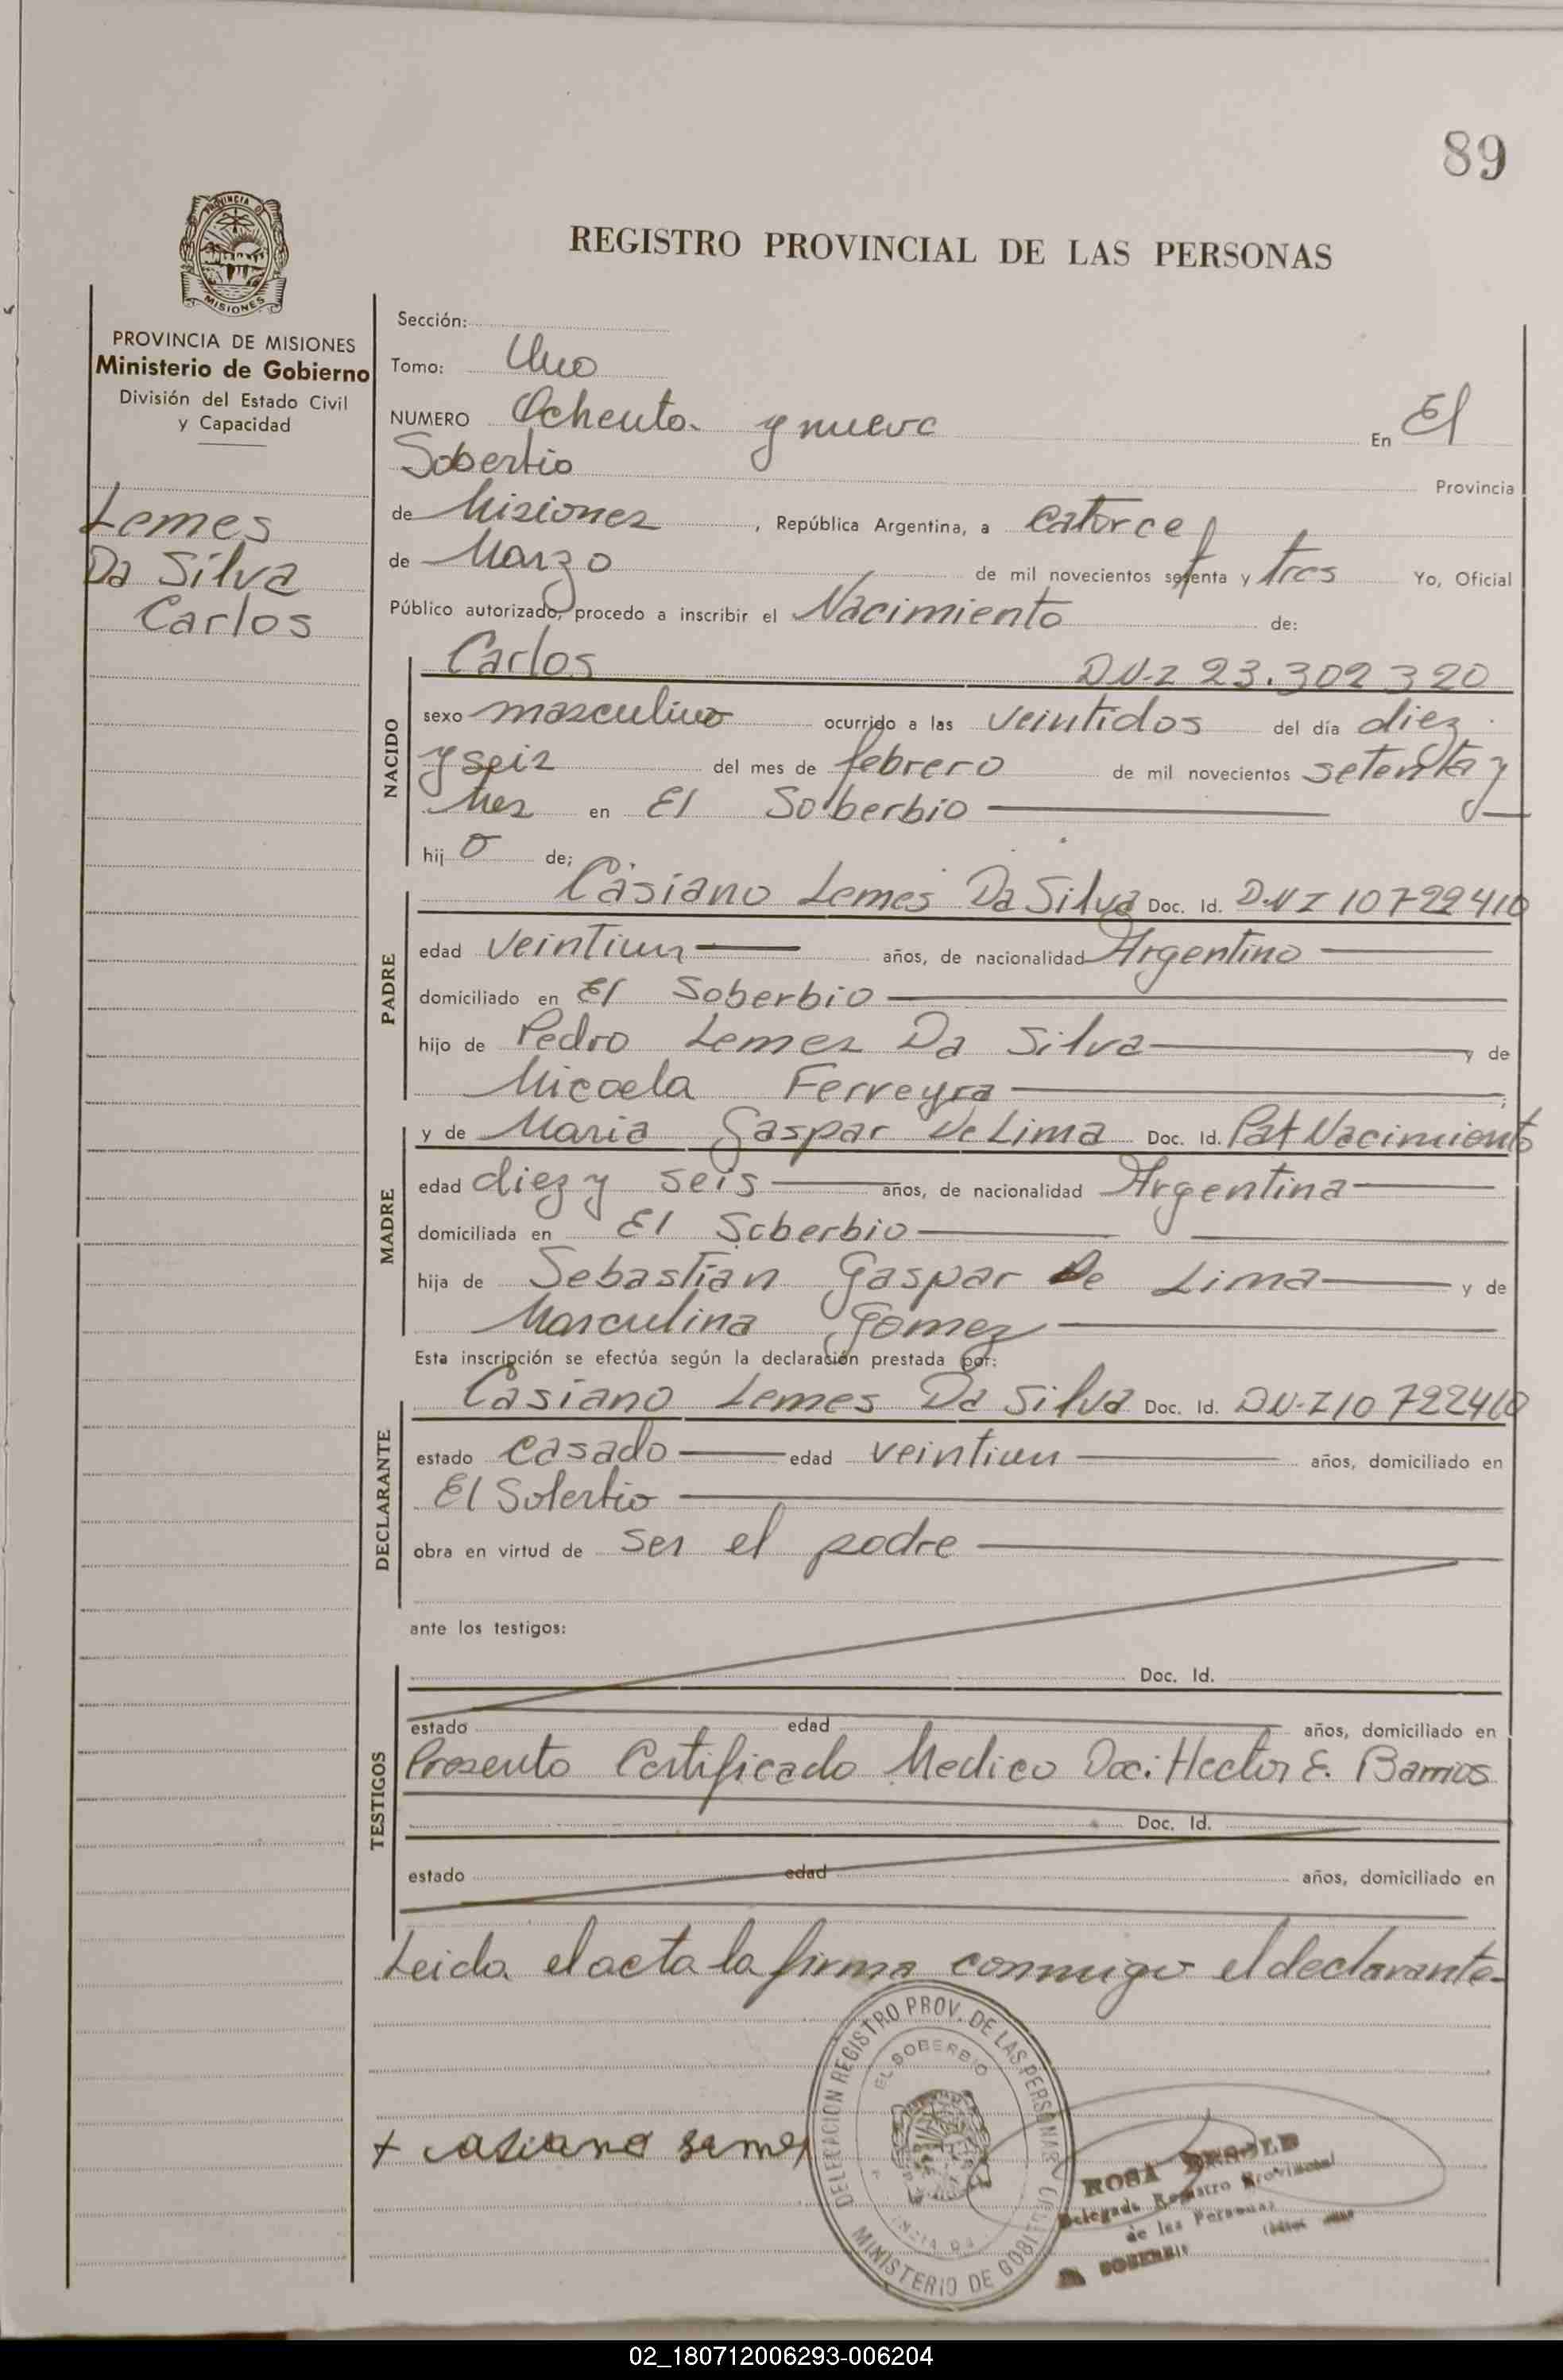 89
REGISTRO PROVINCIAL DE LAS PERSONAS
PROVINCIA DE
MISIONES
PROVINCIA DE MISIONES
Ministerio de Gobierno
División del Estado Civil
y Capacidad
Lemes
Da Silva
Carlos
Sección:
Tomo: Uno
NUMERO Ochenta y nueve En El
Soberbio Provincia
de Misiones, República Argentina, a catorce
de Marzo de mil novecientos setenta y tres Yo, Oficial
Público autorizado, procedo a inscribir el Nacimiento de:
NACIDO
Carlos DN.I 23.302320
sexo masculino ocurrido a las veintidos del día diez
y seis del mes de febrero de mil novecientos setenta y
tres en El Soberbio
hij o de;
PADRE
Casiano Lemes Da Silva Doc. Id. D.N I 10722410
edad veintiun años, de nacionalidad Argentino
domiciliado en El Soberbio
hijo de Pedro Lemes Da Silva y de
Micaela Ferreyra ;
MADRE
y de Maria Gaspar De Lima Doc. Id. Pat Nacimiento
edad diez y seis años, de nacionalidad Argentina
domiciliada en El Soberbio
hija de Sebastian Gaspar De Lima y de
Masculina Gomez
Esta inscripción se efectúa según la declaración prestada por:
DECLARANTE
Casiano Lemes Da Silva Doc. Id. DN.I 10 722410
estado casado edad veintiun años, domiciliado en
El Soberbio
obra en virtud de ser el padre
ante los testigos:
TESTIGOS
Doc. Id.
estado edad años, domiciliado en
Presento Certificado Medico Doc: Hector E. Barrios
Doc. Id.
estado edad años, domiciliado en
Leida el acta la firma conmigo el declarante.
DELEGACION REGISTRO PROV. DE LAS PERSONAS
EL SOBERBIO
MINISTERIO DE GOBIERNO
+ casiano Lemes
ROSA
Delegada Registro Provincial
de las Personas
EL SOBERBIO
02_180712006293-006204